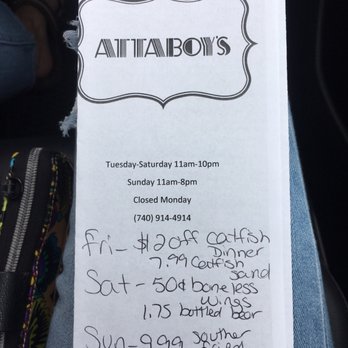 ATTABOY'S
Tuesday-Saturday 11am-10pm
Sunday 11am-8pm
Closed Monday
(740) 914-4914
Fri- $2 off Catfish
Dinner
7.99 Catfish
Sand
Sat - 50¢ boneless
wings
1.75 bottled beer
Sun - 9.99 souther
fried